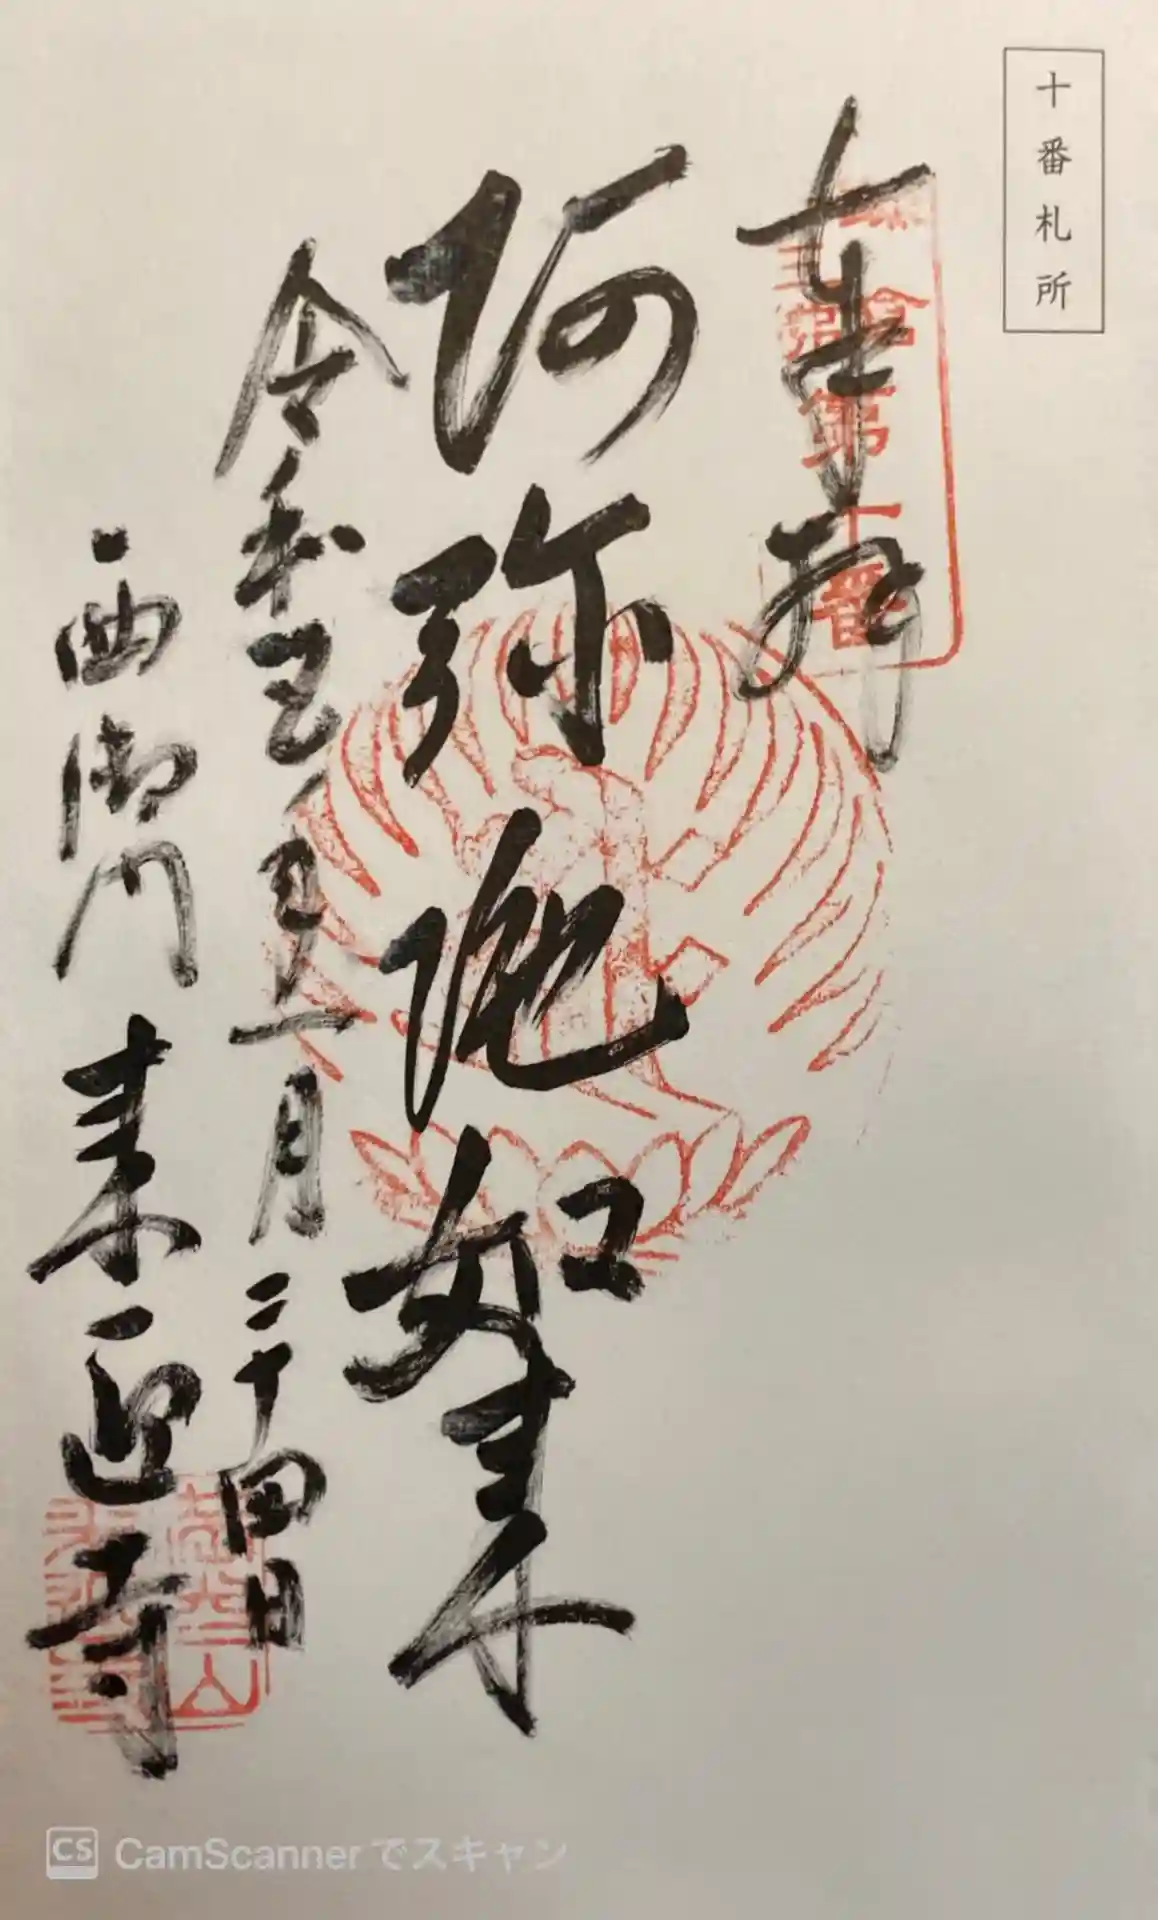 十番札所
奉拝
第十番
阿弥陀如来
令和五年一月二十四日
西御門 来迎寺
CS CamScannerでスキャン